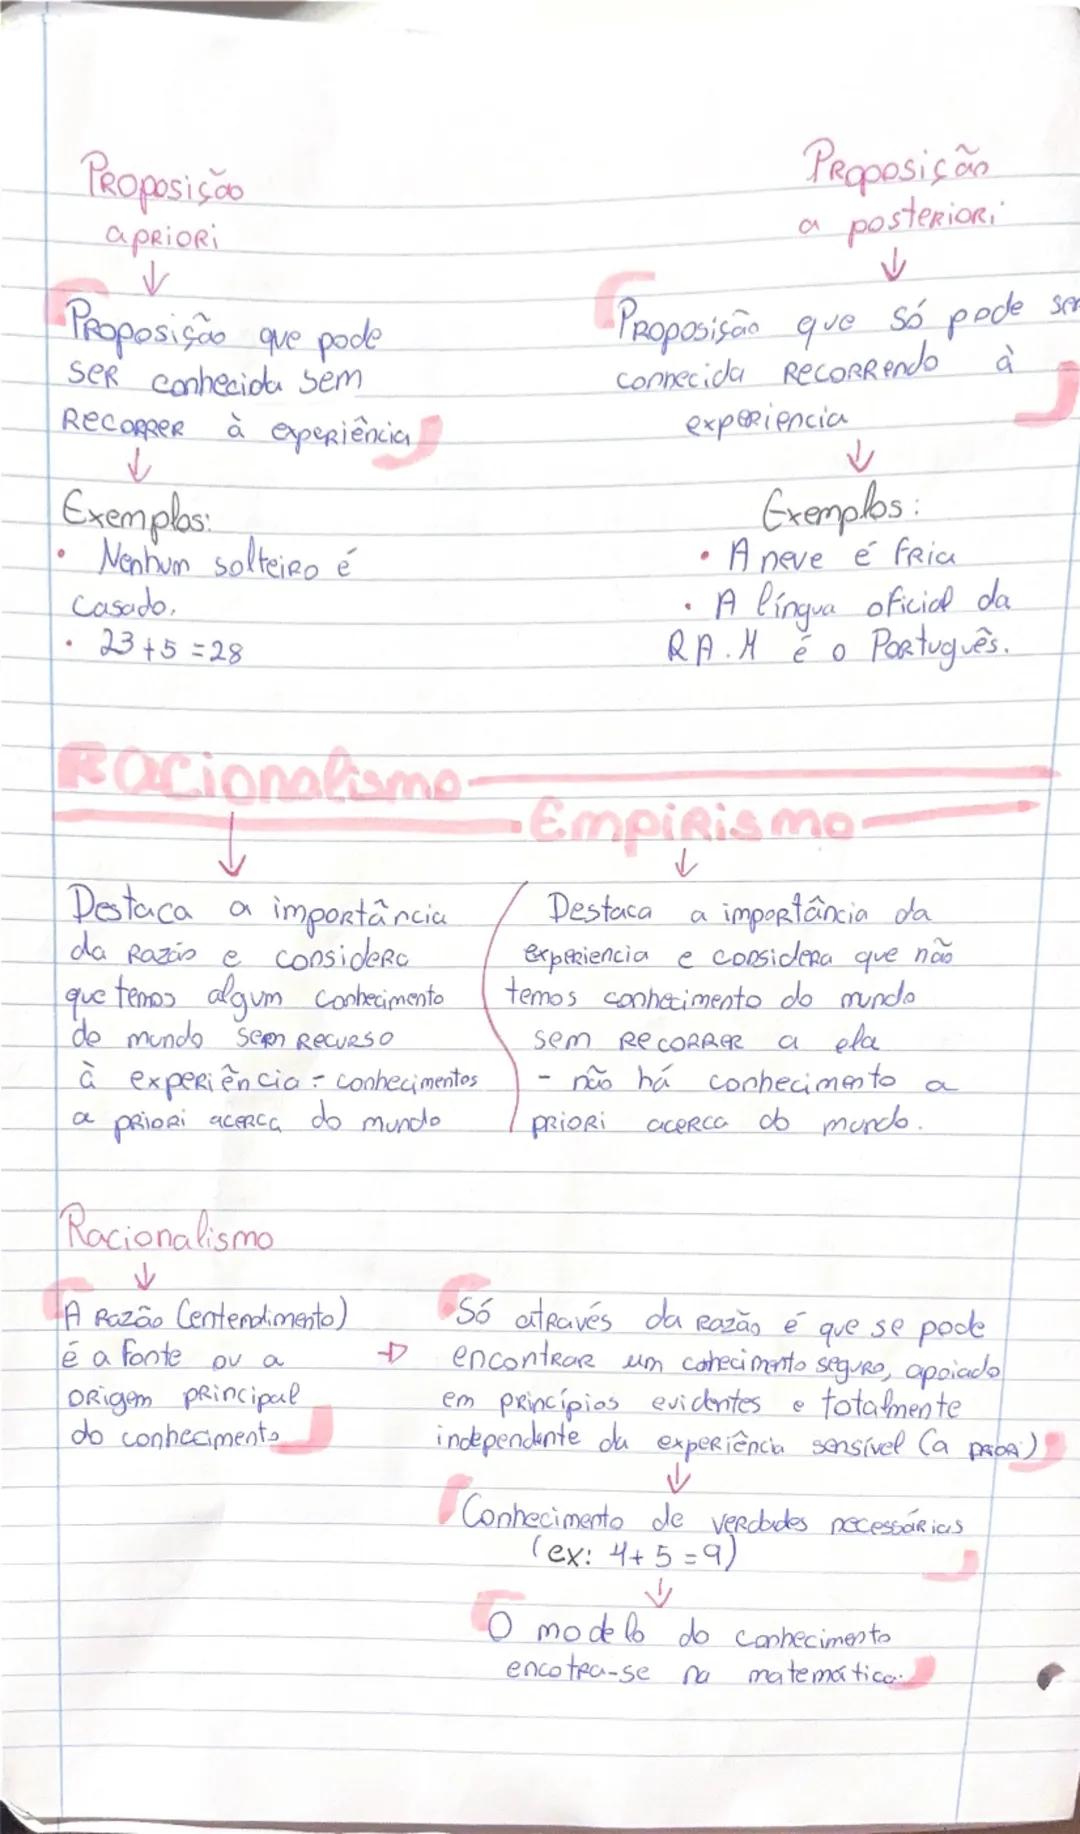 Proposição
a priori
↓
Proposição que pode
ser conhecida sem
recorrer à experiência
↓
Exemplos:
• Nenhum solteiro é
casado.
• 23+5=28
Proposição
a posteriori
↓
Proposição que só pode ser
connecida recorrendo à
experiencia
↓
Exemplos:
• A neve é fria
• A língua oficial da
RA.M é o Português.
Racionalismo
↓
Destaca a importância
da Razão e considera
que temos algum conhecimento
do mundo sem recurso
à experiência - conhecimentos
a priori acerca do mundo
Empirismo
↓
Destaca a importância da
experiencia e considera que não
temos conhecimento do mundo
sem recorrer a ela
- não há conhecimento a
priori acerca do mundo.
Racionalismo
↓
A Razão (entendimento)
é a fonte ou a
origem principal
do conhecimento
→
Só através da razão é que se pode
encontrar um cohecimento seguro, apoiado
em princípios evidentes e totalmente
independente da experiência sensível (a priori)
↓
Conhecimento de verdades necessárias
(ex: 4+5=9)
↓
O modelo do conhecimento
encotra-se na matemática.